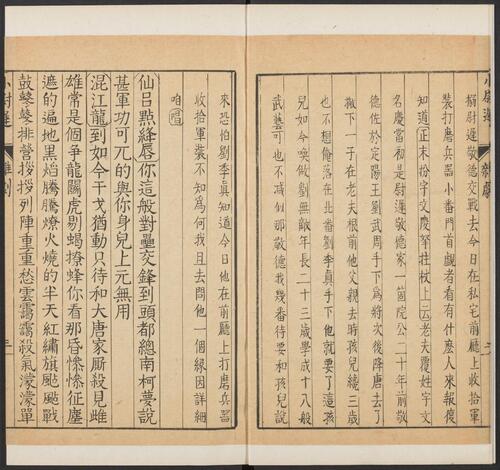 搦尉遲敬德交戰去今日在私宅前廳上收拾軍
裝打磨兵器小番門首覷者看有什麽人來報復
知道正末扮宇文慶拏拄杖上云老夫覆姓宇文
名慶當初是尉遲敬德家一箇院公二十年前敬
德佐於定陽王劉武周手下爲將次後降唐去了
撇下一子在老夫根前他父親去時孩兒纔三歲
也不想俺落在北番劉季真手下他就要了這孩
兒如今喚做劉無敵年長二十三歲學成十八般
武藝可也不减似那敬德我幾番待要和孩兒說
來恐怕劉季真知道今日他在前廳上打磨兵器
收拾軍裝不知爲何我且去問他一個緣因詳細
咱唱
仙呂點絳唇你這般對壘交鋒到頭都總南柯夢說
甚軍功可兀的與你身兒上元無用
混江龍到如今干戈猶動只待和大唐家厮殺見雌
雄常是個爭龍鬬虎剔蝎撩蜂你看那昏慘慘征塵
遮的遍地黑焰騰騰燎火燒的半天紅繡旗颩颩戰
鼓鼕鼕排營拶拶列陣重重愁雲靄靄殺氣濛濛單